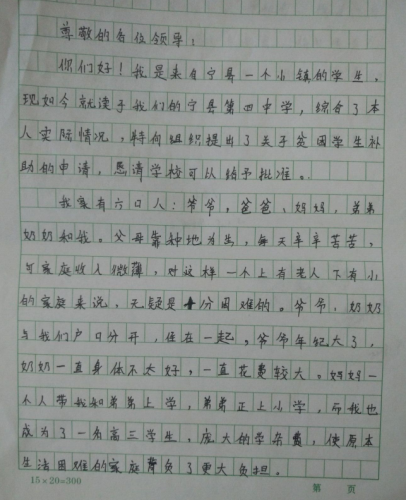 尊敬的各位领导：
你们好！我是来自宁县一个小镇的学生，
现如今就读于我们的宁县第四中学，综合了本
人实际情况，特向组织提出了关于贫困学生补
助的申请，恳请学校可以给予批准。
我家有六口人：爷爷，爸爸、妈妈，弟弟
奶奶和我。父母靠种地为生，每天辛辛苦苦，
可家庭收入微薄，对这样一个上有老人下有小
的家庭来说，无疑是十分困难的。爷爷、奶奶
与我们户口分开，住在一起。爷爷年纪大了，
奶奶一直身体不太好，一直花费较大。妈妈一
个人带我和弟弟上学，弟弟正上小学，而我也
成为了一名高三学生，庞大的学杂费，使原本
生活困难的家庭背负了更大负担。
15×20=300 第 页